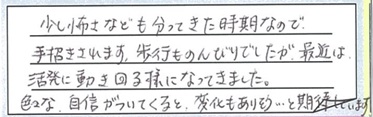 少し怖さなども分ってきた時期なので
手招きされます。歩行ものんびりでしたが、最近は、
活発に動き回る様になってきました。
色々な、自信がついてくると、変化もありそう…と期待しています